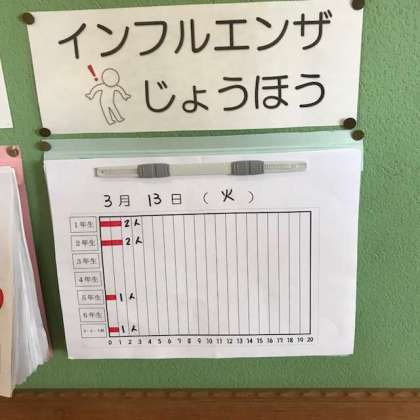 インフルエンザ
!
じょうほう
3月 13日 (火)
1年生 2人
2年生 2人
3年生
4年生
5年生 1人
6年生
1人
0 1 2 3 4 5 6 7 8 9 10 11 12 13 14 15 16 17 18 19 20